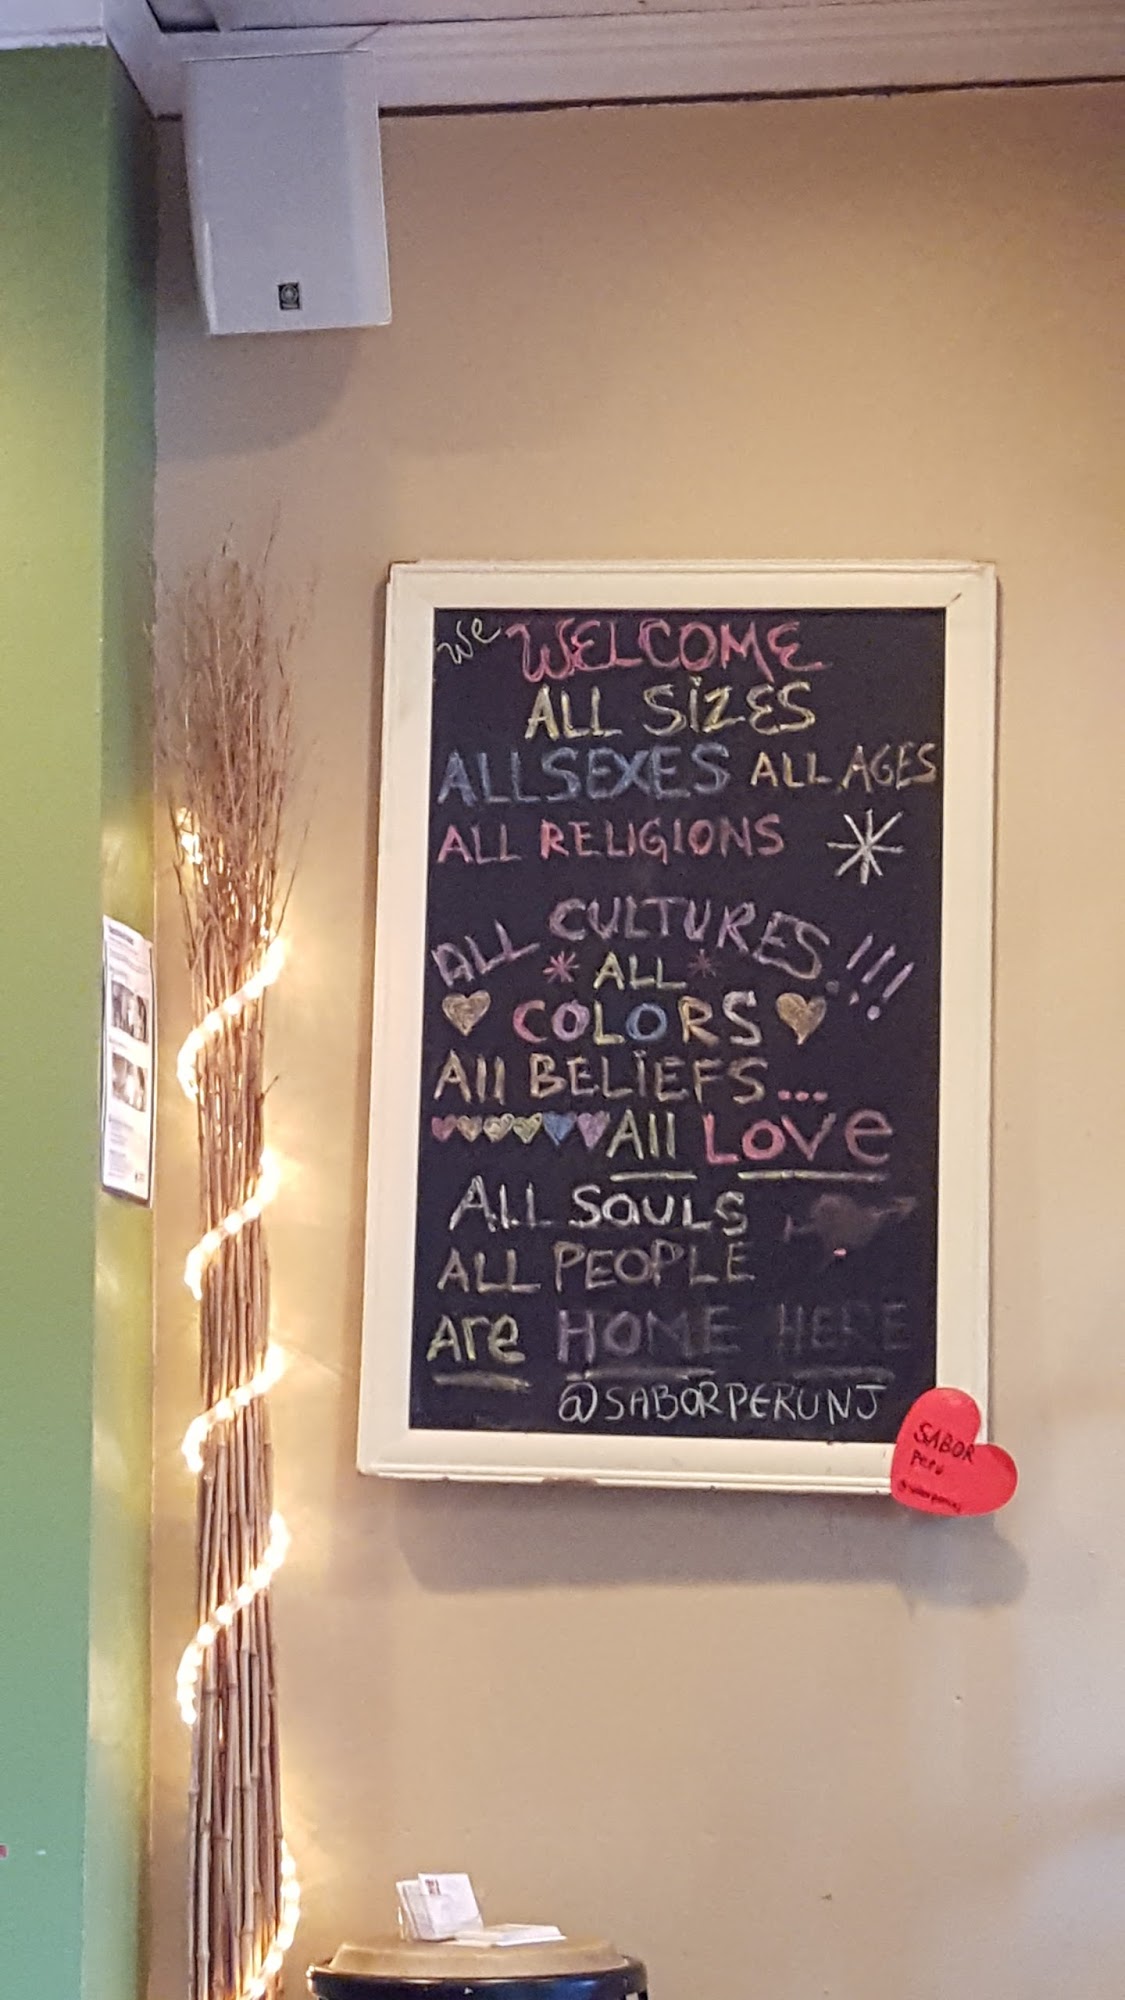 We WELCOME
ALL SIZES
ALL SEXES ALL AGES
ALL RELIGIONS
ALL CULTURES!!!
ALL
COLORS
All BELIEFS...
All LOVe
ALL SOULS
ALL PEOPLE
Are HOME HERE
@SABORPERUNJ
SABOR
Peru